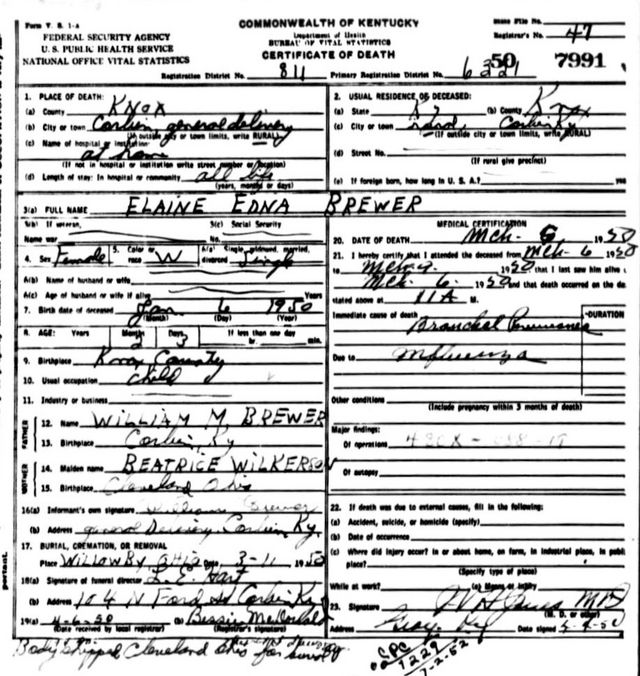 Form V. S. 1-A
FEDERAL SECURITY AGENCY
U. S. PUBLIC HEALTH SERVICE
NATIONAL OFFICE VITAL STATISTICS
COMMONWEALTH OF KENTUCKY
Department of Health
BUREAU OF VITAL STATISTICS
CERTIFICATE OF DEATH
State File No.
Registrar's No. 47
50 7991
Registration District No. 811 Primary Registration District No.
1. PLACE OF DEATH:
(a) County Knox
(b) City or town Corbin general delivery
(If outside city or town limits, write RURAL)
(c) Name of hospital or institution:
at home
(If not in hospital or institution write street number or location)
(d) Length of stay: In hospital or community all life
(years, months or days)
2. USUAL RESIDENCE OF DECEASED:
(a) State Ky (b) County Knox
(c) City or town Corbin Ky
(If outside city or town limits, write RURAL)
(d) Street No.
(If rural give precinct)
(e) If foreign born, how long in U. S. A.?
3(a) FULL NAME ELAINE EDNA BREWER
3(b) If veteran, 3(c) Social Security
Name war No.
4. Sex Female 5. Color or race W 6(a) Single, widowed, married, divorced Single
6(b) Name of husband or wife
6(c) Age of husband or wife if alive Years
7. Birth date of deceased Jan 6 1950
(Month) (Day) (Year)
8. AGE: Years Months Days If less than one day
2 3 hr. min.
9. Birthplace Knox County
10. Usual occupation child
11. Industry or business
FATHER
12. Name WILLIAM M BREWER
13. Birthplace Corbin, Ky
MOTHER
14. Maiden name BEATRICE WILKERSON
15. Birthplace Cleveland Ohio
16(a) Informant's own signature William Brewer
(b) Address general Delivery Corbin Ky.
17. BURIAL, CREMATION, OR REMOVAL
Place WILLOWBY OHIO Date 3-11 1950
18(a) Signature of funeral director L. E. Hart
(b) Address 104 N Ford St Corbin Ky
19(a) 4-6-50 (b) Bessie
(Date received by local registrar) (Registrar's signature)
Body Shipped Cleveland Ohio for burial
MEDICAL CERTIFICATION
20. DATE OF DEATH Mch. 1950
21. I hereby certify that I attended the deceased from Mch 6 1950
to Mch. 9. 1950 that I last saw him alive
Mch 6. 1950 and that death occurred on the date
stated above at 11 A M.
Immediate cause of death DURATION
Bronchial Pneumonia
Due to Influenza
Other conditions
(Include pregnancy within 3 months of death)
Major findings:
Of operations
Of autopsy
22. If death was due to external causes, fill in the following:
(a) Accident, suicide, or homicide (specify)
(b) Date of occurrence
(c) Where did injury occur? In or about home, on farm, in industrial place, in public
place?
(Specify type of place)
While at work? (e) Means of injury
23. Signature MD
(M. D. or other)
Address Gray Ky Date signed
CPC
7229
7-2-52
portant.